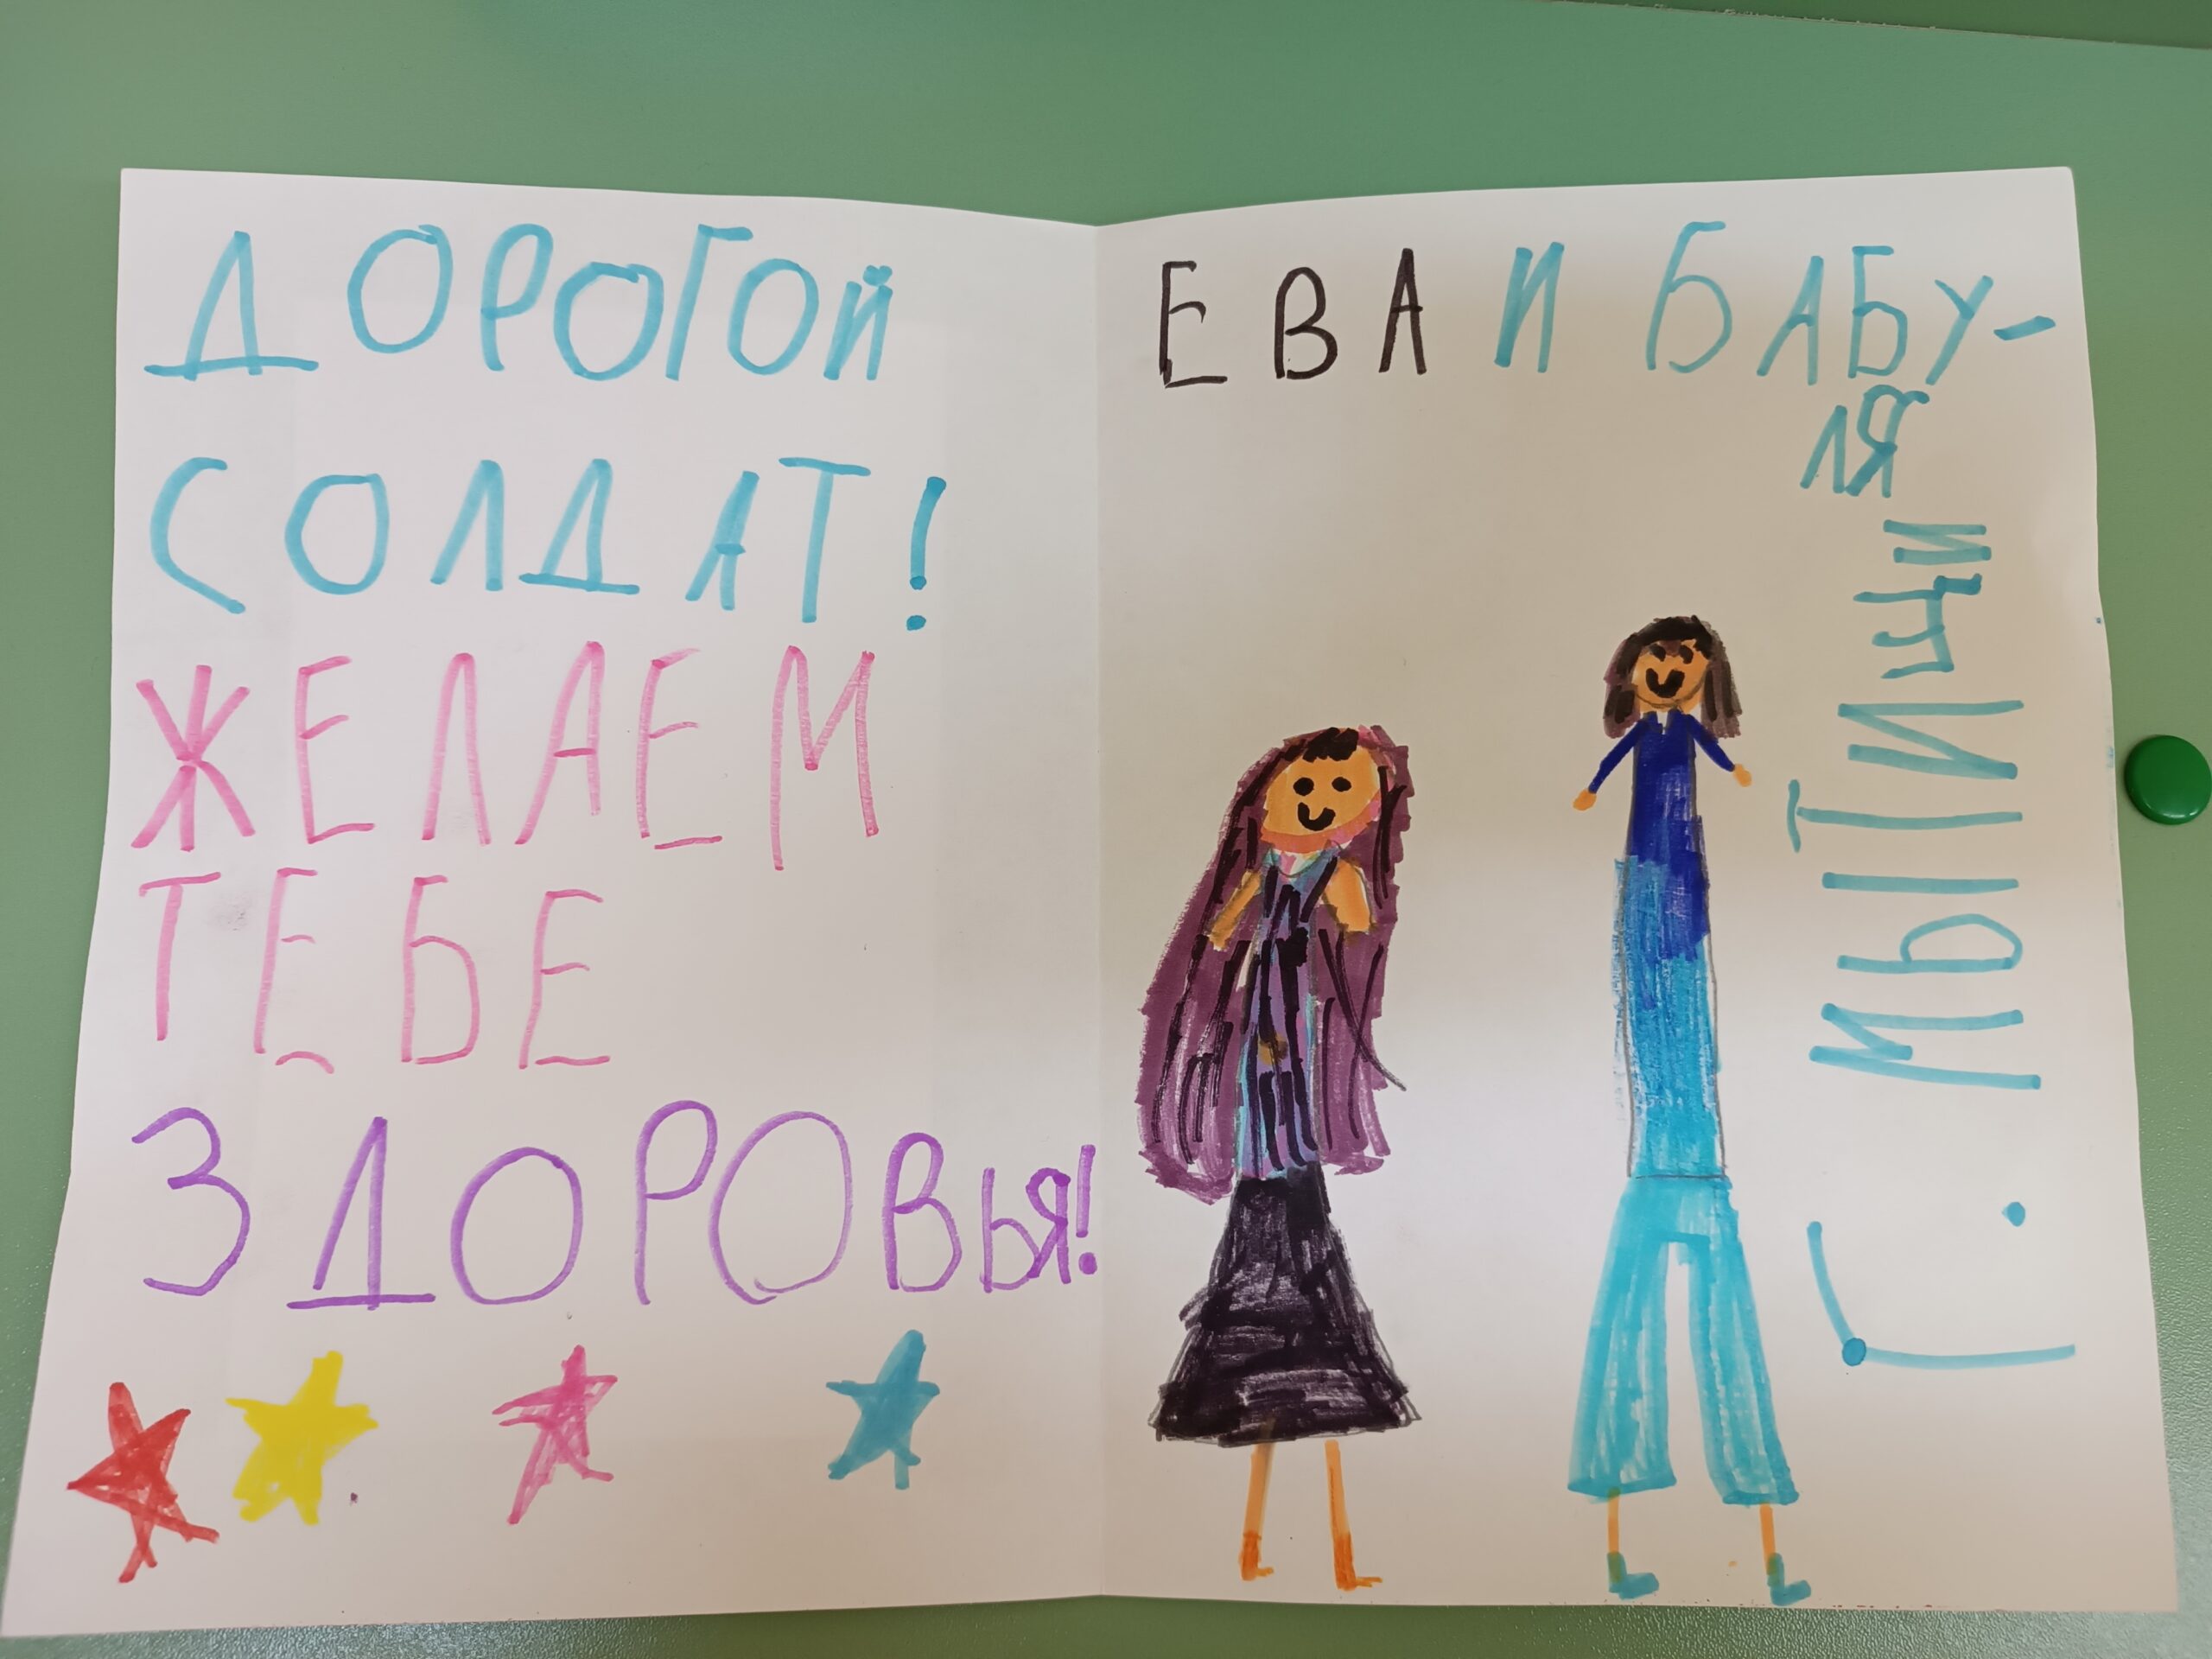 ДОРОГОЙ
СОЛДАТ!
ЖЕЛАЕМ
ТЕБЕ
ЗДОРОВЬЯ!
ЕВА И БАБУ-
ЛЯ
Г. МЫТИЩИ